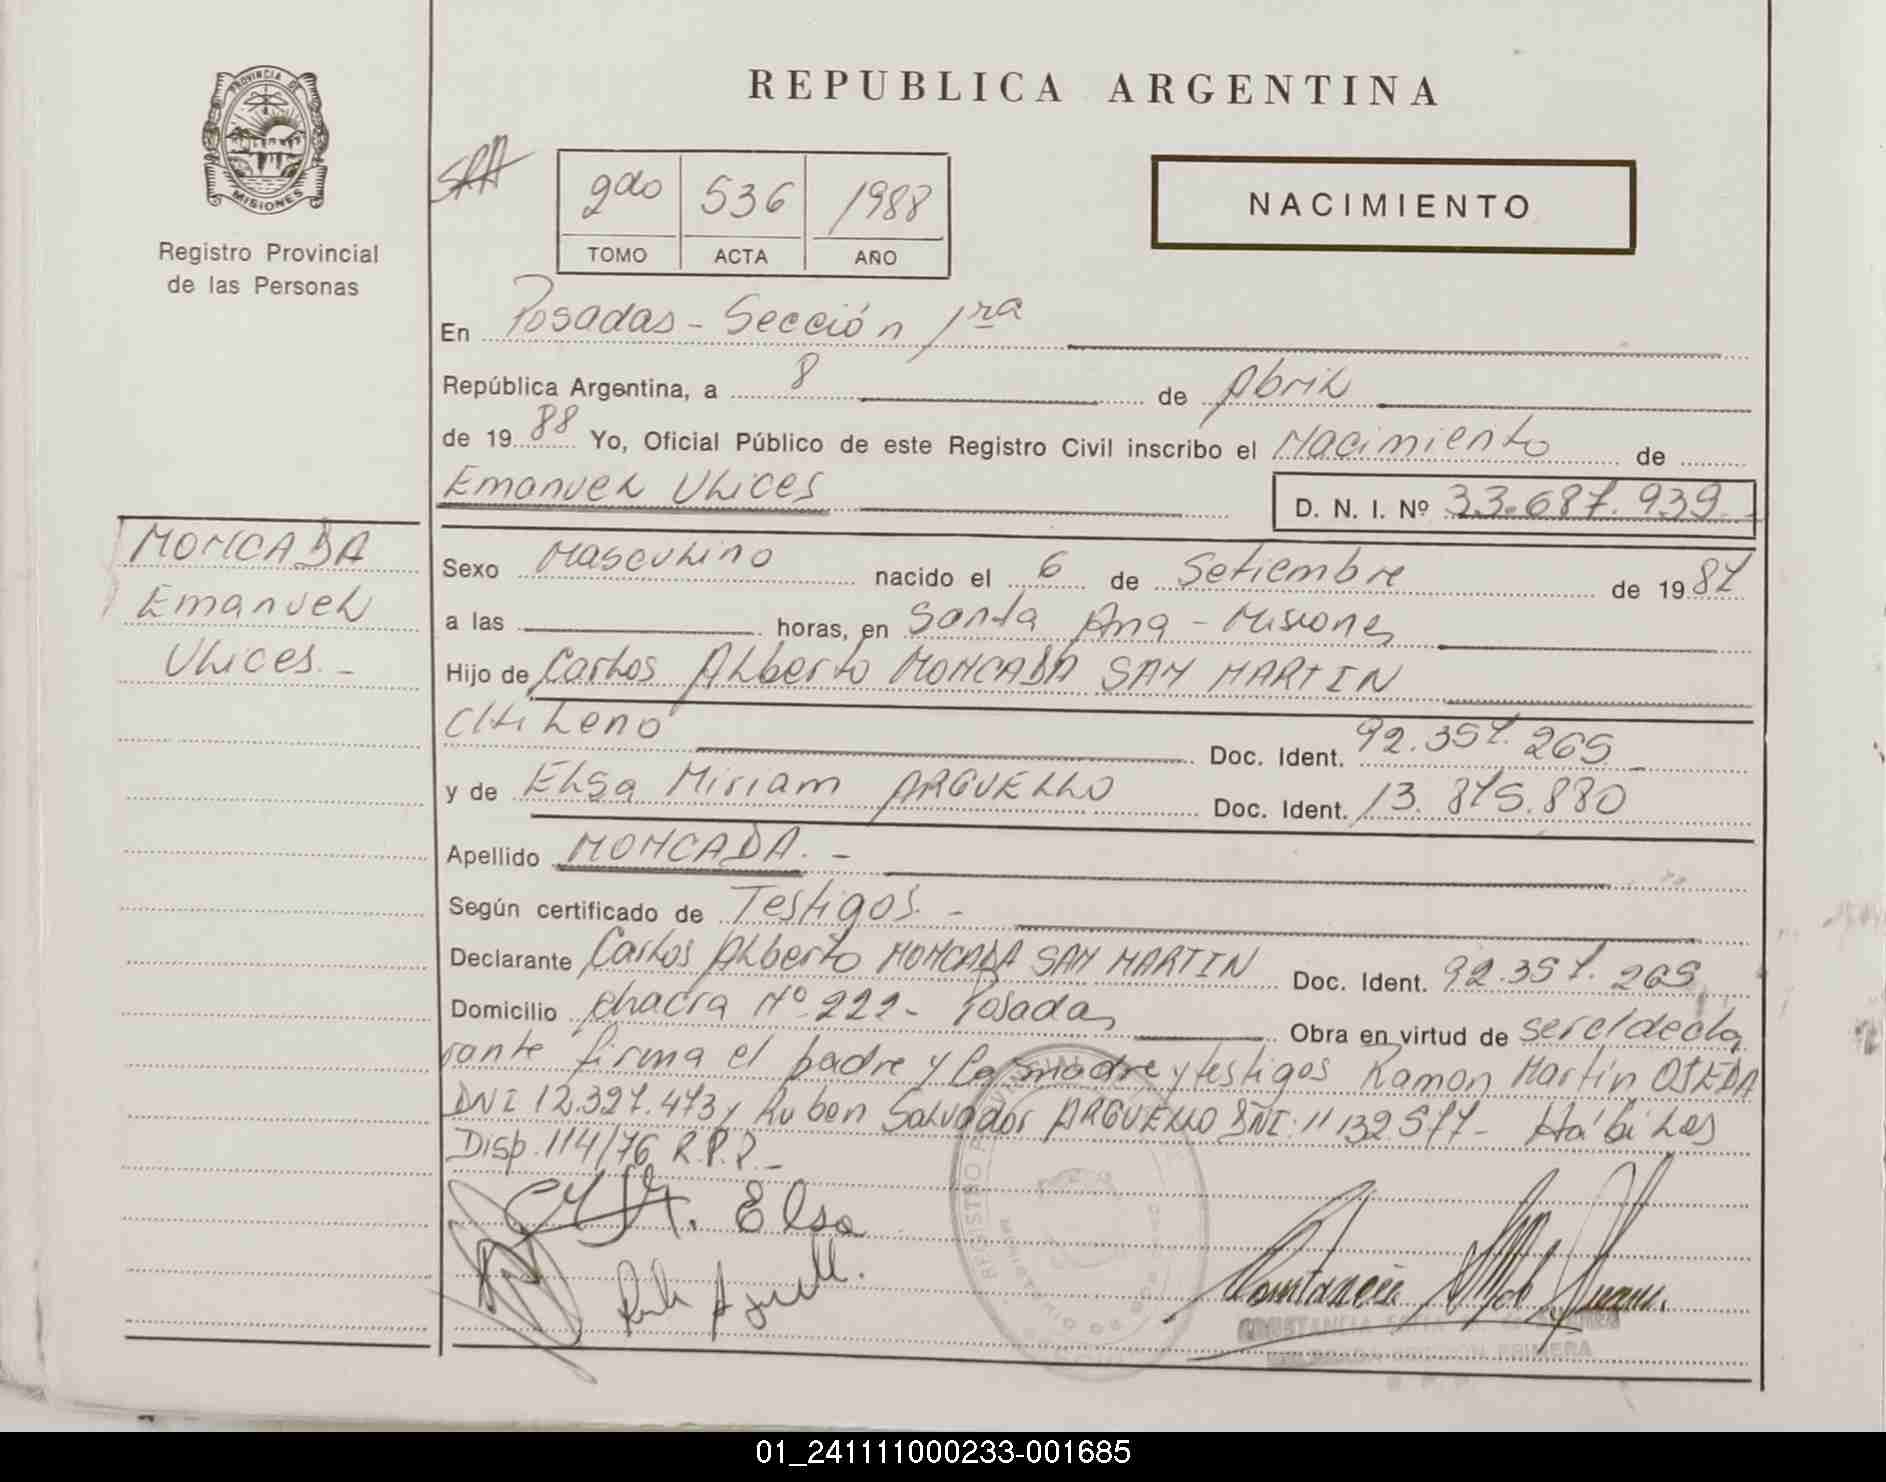 PROVINCIA DE
MISIONES
Registro Provincial
de las Personas
REPUBLICA ARGENTINA
2do 536 1988
TOMO ACTA AÑO
NACIMIENTO
En Posadas - Sección 1ra
República Argentina, a 8 de Abril
de 1988 Yo, Oficial Público de este Registro Civil inscribo el Nacimiento de
Emanuel Ulices D. N. I. Nº 33.687.939
MONCADA
Emanuel
Ulices. -
Sexo Masculino nacido el 6 de Setiembre de 1987
a las horas, en Santa Ana - Misiones
Hijo de Carlos Alberto MONCADA SAN MARTIN
Chileno Doc. Ident. 92.357.265 -
y de Elsa Miriam ARGUELLO Doc. Ident. 13.875.880
Apellido MONCADA. -
Según certificado de Testigos. -
Declarante Carlos Alberto MONCADA SAN MARTIN Doc. Ident. 92.357.265
Domicilio chacra Nº 222 - Posadas Obra en virtud de ser el decla
rante firma el padre y la madre y testigos Ramon Martín OJEDA
DNI 12.327.473 y Ruben Salvador ARGUELLO DNI. 11132577 - Hábiles
Disp. 114/76 R.P.P. -
Elsa
REGISTRO PROVINCIAL
MINISTERIO DE
CONSTANCIA
SECCION PRIMERA
01_241111000233-001685